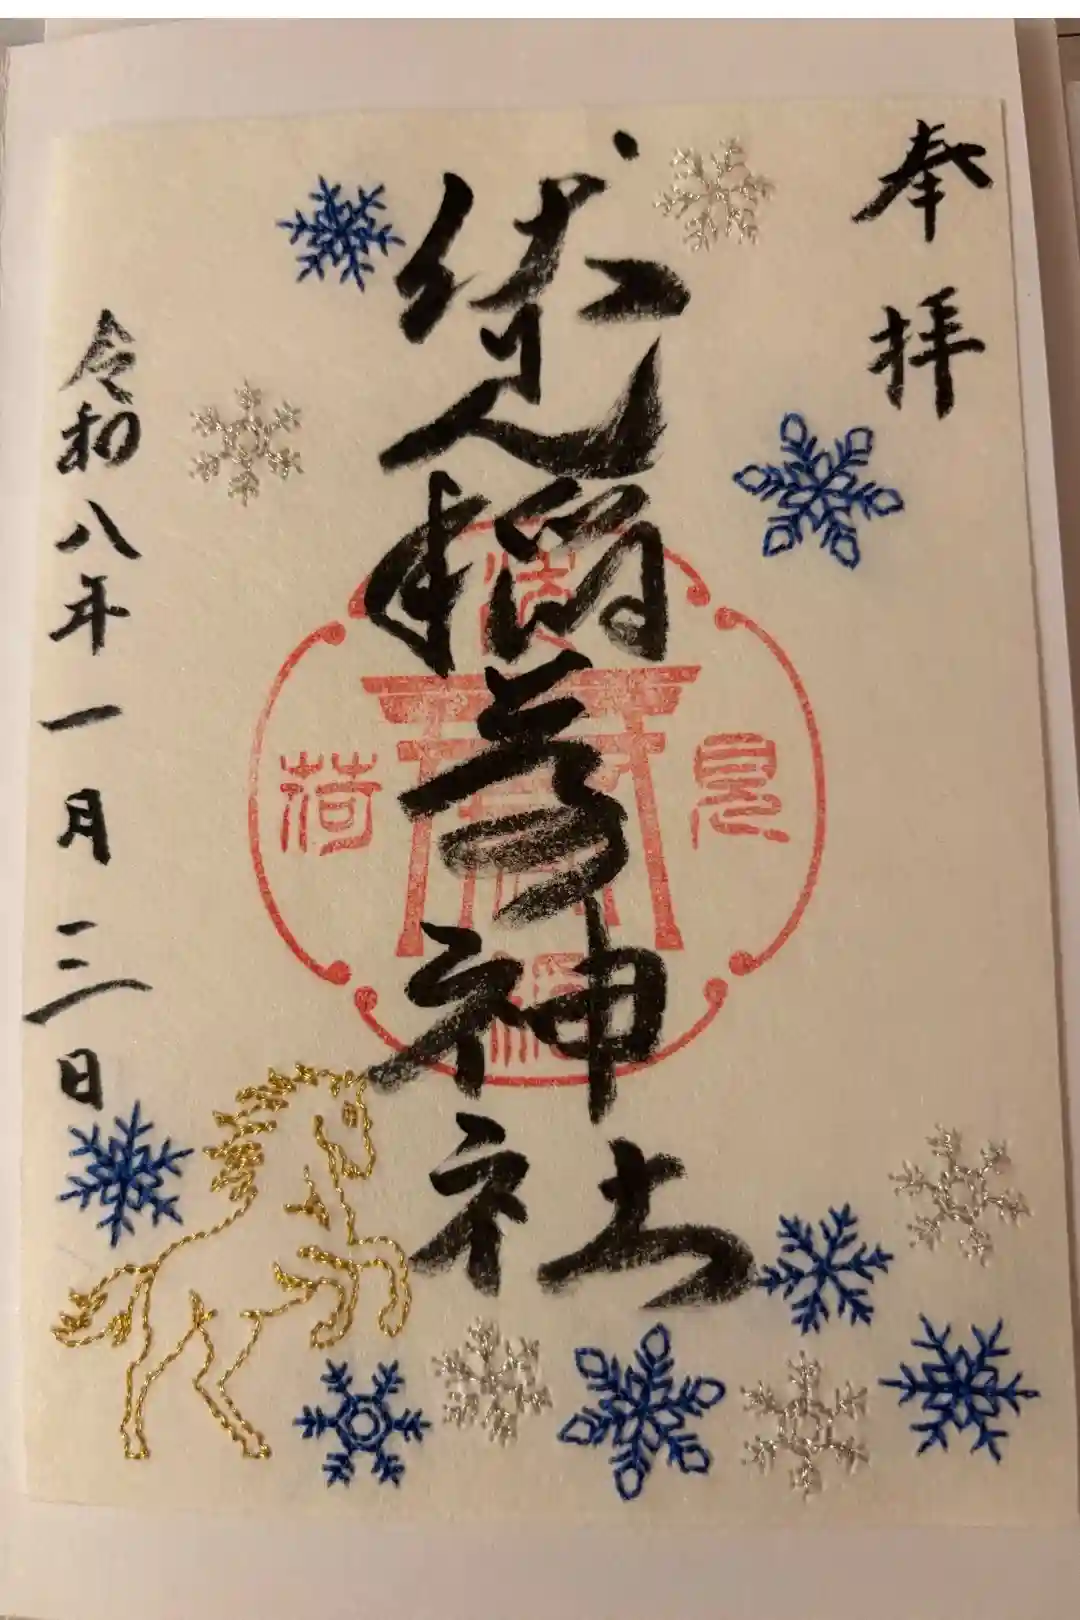 奉拝
伏見稲荷神社
見
荷
令和八年一月三日